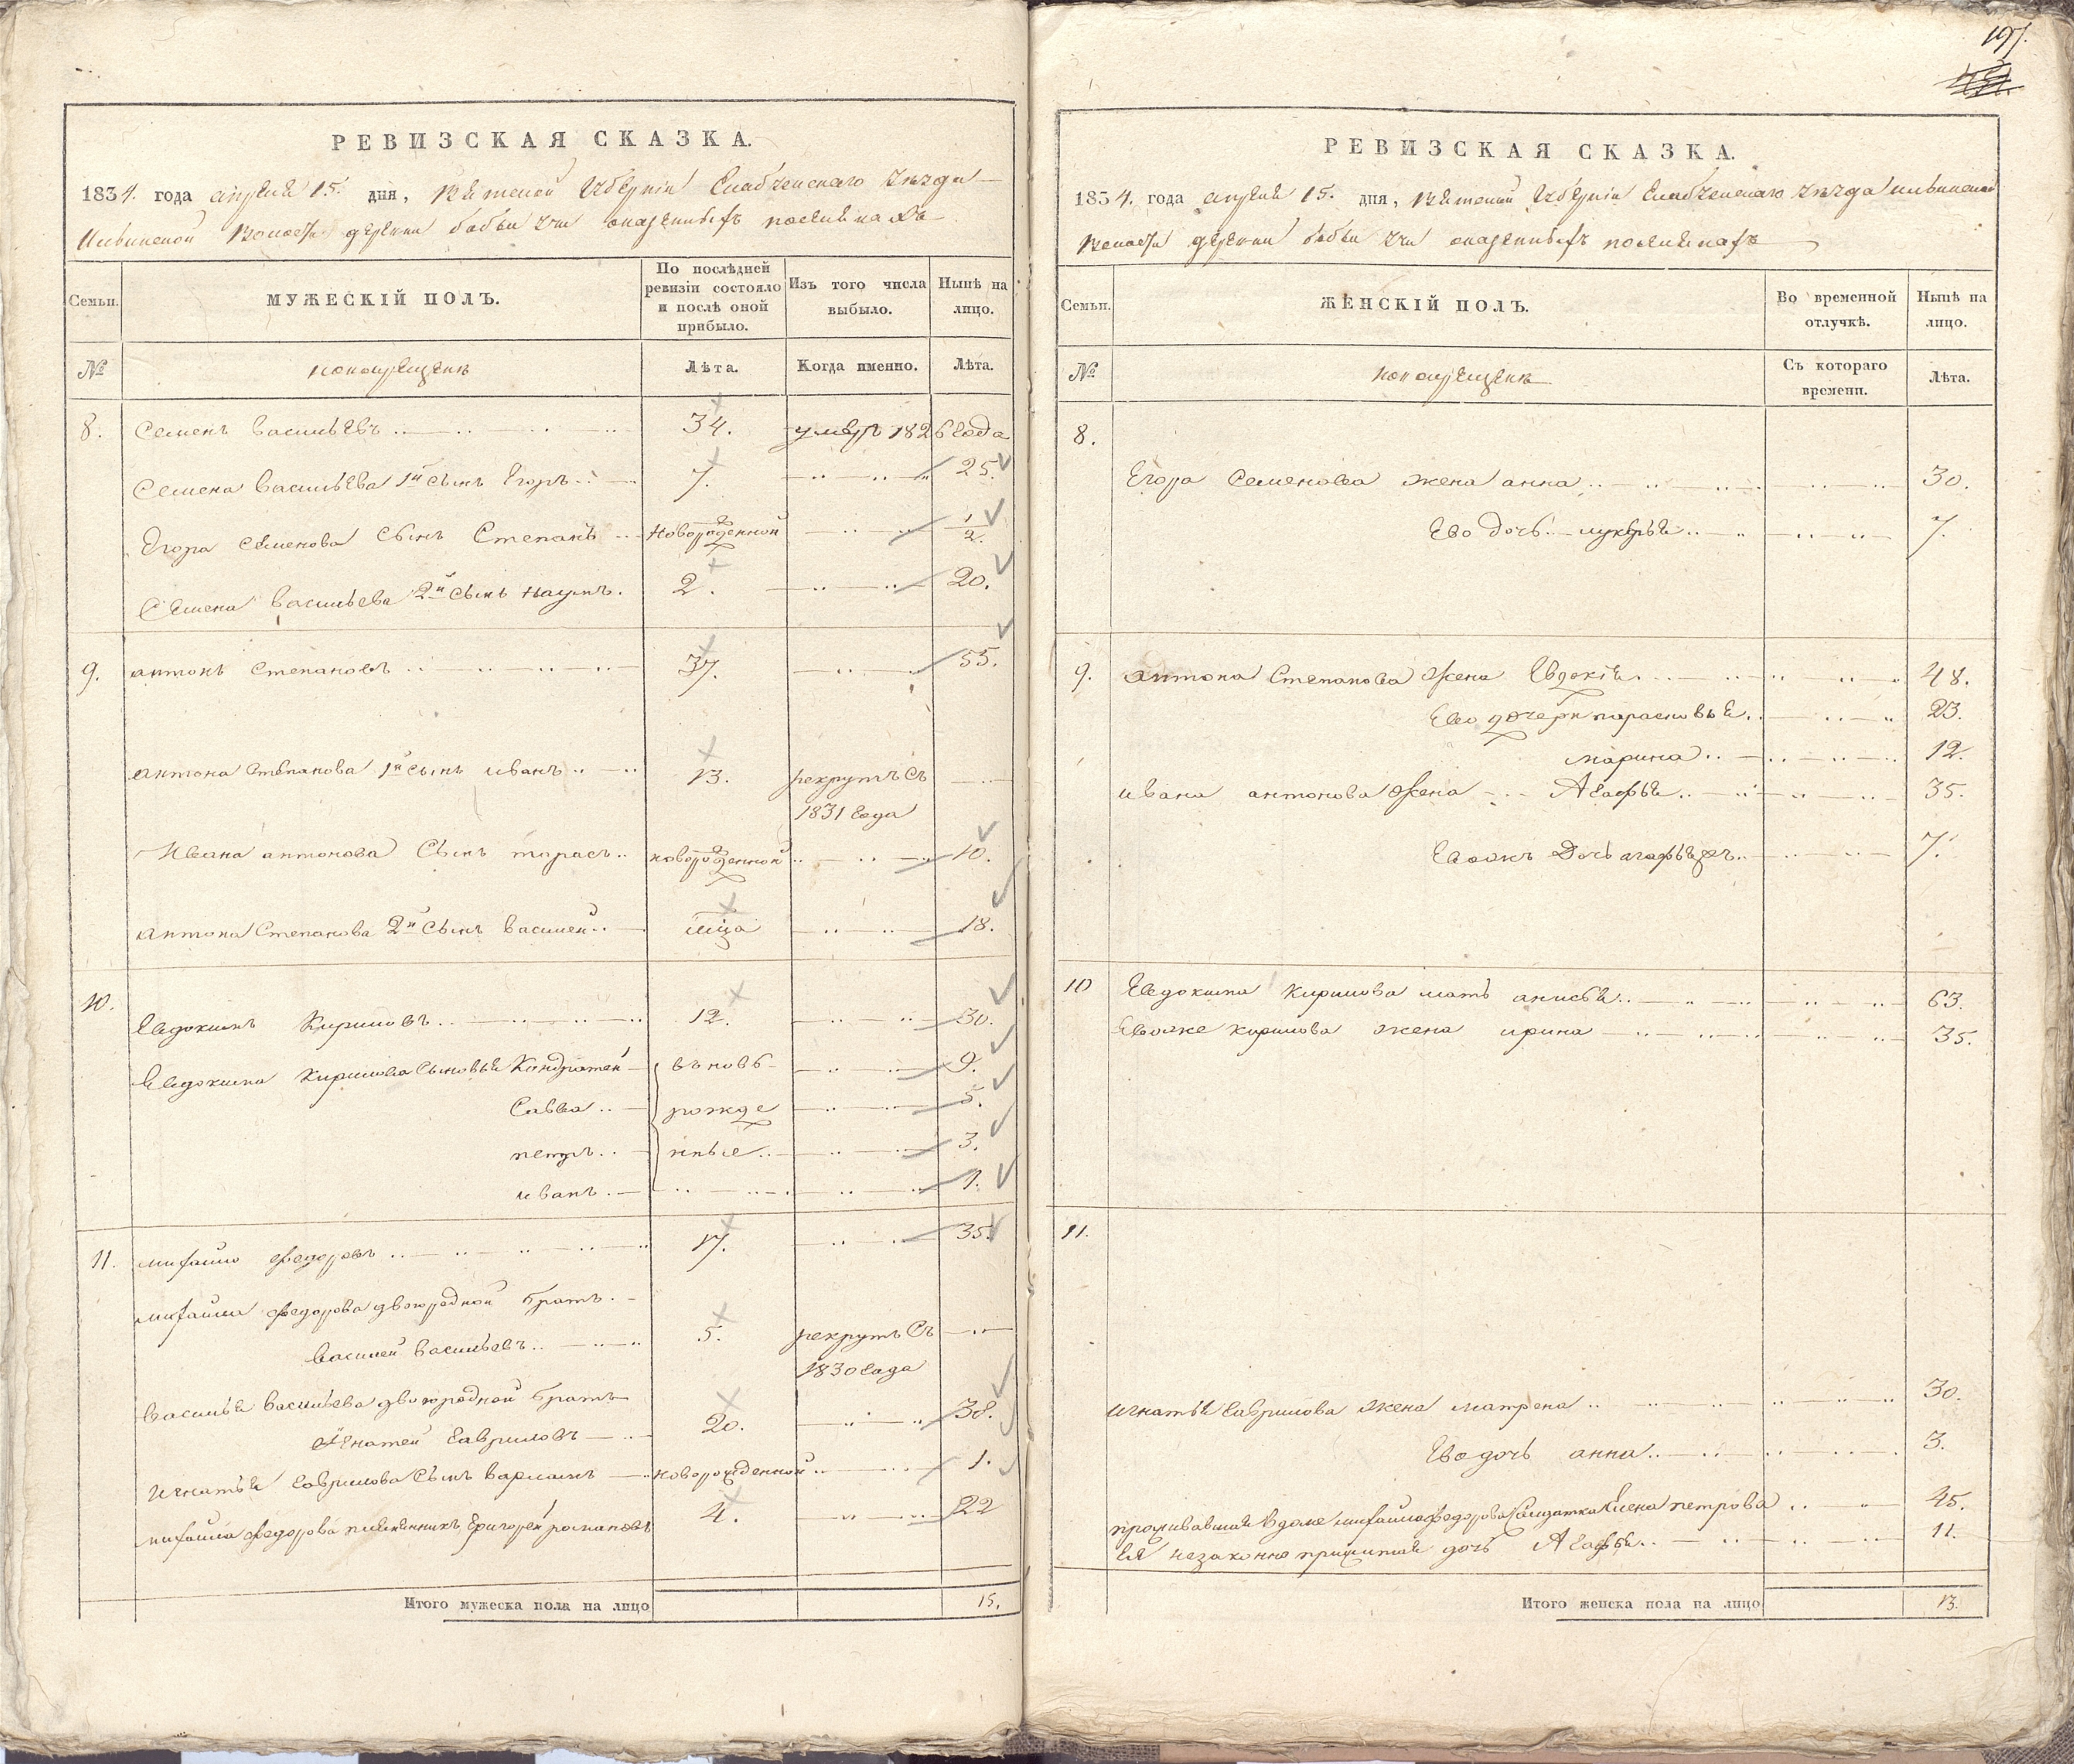 197.
РЕВИЗСКАЯ СКАЗКА.
1834. года апреля 15. дня, Вятской Губерніи Елабужскаго уѣзда
волости деревни бабьи учи оказенныхъ поселянахъ
Семьи.
МУЖЕСКІЙ ПОЛЪ.
По послѣдней ревизіи состояло и послѣ оной прибыло.
Изъ того числа выбыло.
Нынѣ на лицо.
№
Лѣта.
Когда именно.
Лѣта.
8. Семенъ Васильевъ 34. умеръ 1826 года
Семена Васильева 1й сынъ Егоръ 7. 25.
Егора Семенова сынъ Степанъ новорожденной 1/2.
Семена Васильева 2й сынъ Наумъ. 2. 20.
9. Антонъ Степановъ 37. 55.
Антона Степанова 1й сынъ Иванъ 13. рекрутъ съ
1831 года
Ивана Антонова сынъ Тарасъ новорожденной 10.
Антона Степанова 2й сынъ Василей мца 18.
10. Евдокимъ Кириловъ 12. 30.
Евдокима Кирилова сыновья Кондратей вновь 9.
Савва рожде 5.
Петръ нные 3.
Иванъ 1.
11. Михайло Федоровъ 17. 35.
Михайла Федорова двоюродной братъ
Василей Васильевъ 5. рекрутъ съ
1830 года
Василья Васильева двоюродной братъ
Игнатей Гавриловъ 20. 38.
Игнатья Гаврилова сынъ Варламъ новорожденной 1.
Михайла Федорова племянникъ Григорей Романовъ 4. 22
Итого мужеска пола на лицо 15.
РЕВИЗСКАЯ СКАЗКА.
1834. года апреля 15. дня, Вятской Губерніи Елабужскаго уѣзда
волости деревни бабьи учи оказенныхъ поселянахъ
Семьи.
ЖЕНСКІЙ ПОЛЪ.
Во временной отлучкѣ.
Нынѣ на лицо.
№
Съ котораго времени.
Лѣта.
8.
Егора Семенова жена Анна 30.
Ево дочь Лукерья 7.
9. Антона Степанова жена Евдокія 48.
Ево дочери Парасковья 23.
Марина 12.
Ивана Антонова жена Агафья 35.
дочь 7.
10 Евдокима Кирилова мать Анисья 63.
Евоже Кирилова жена Ирина 35.
11.
Игнатья Гаврилова жена Матрена 30.
Ево дочь Анна 3.
проживавшая в доме Михайла Федорова Солдатка Елена Петрова 45.
Ея незаконно прижитая дочь Агафья 11.
Итого женска пола на лицо 13.